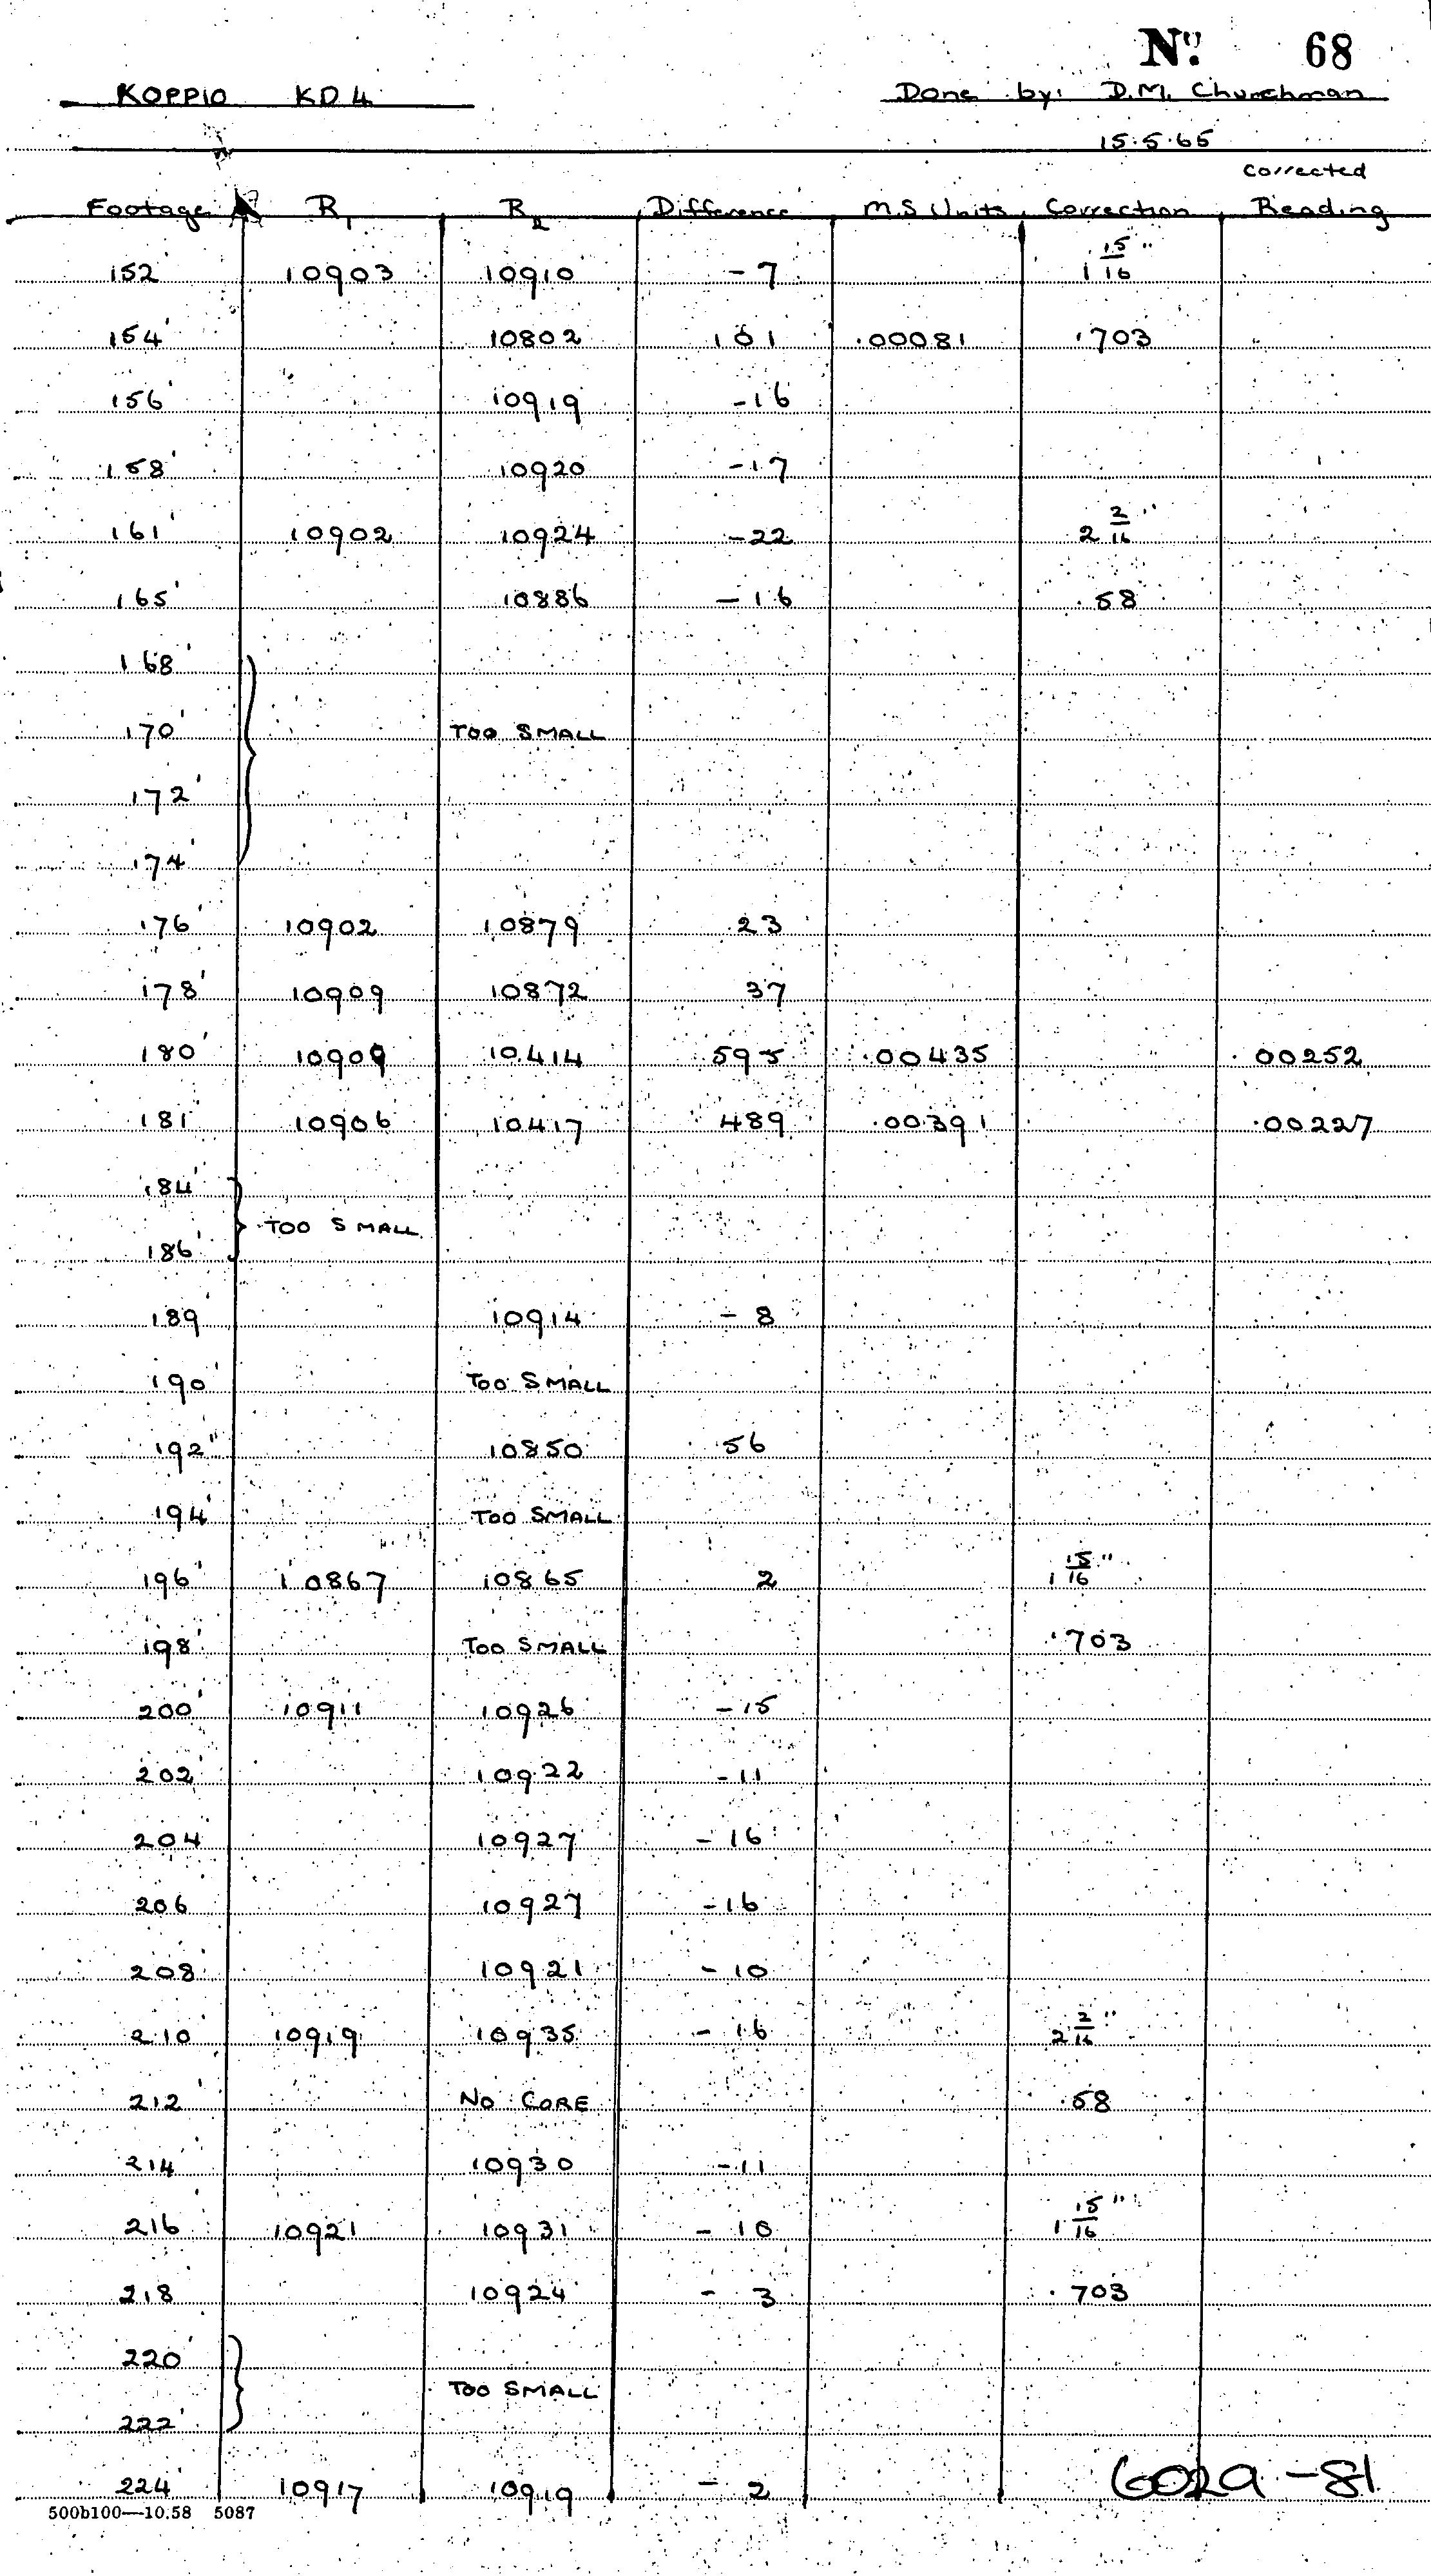 Nº. 68
KOPPIO KD4 Done by: D.M. Churchman
15.5.65
Footage R1 R2 Difference M.S Units Correction Corrected Reading
152' 10903 10910 -7 1 15/16"
154' 10802 101 .00081 .703
156' 10919 -16
158' 10920 -17
161' 10902 10924 -22 2 2/16"
165' 10886 -16 .58
168'
170' TOO SMALL
172'
174'
176' 10902 10879 23
178' 10909 10872 37
180' 10909 10414 595 .00435 .00252
181' 10906 10417 489 .00391 .00227
184'
TOO SMALL
186'
189 10914 -8
190' TOO SMALL
192" 10850 56
194' TOO SMALL
196' 10867 10865 2 1 15/16"
198' TOO SMALL .703
200' 10911 10926 -15
202' 10922 -11
204' 10927 -16
206 10927 -16
208 10921 -10
210' 10919 10935 -16 2 2/16"
212' NO CORE .58
214' 10930 -11
216' 10921 10931 -10 1 15/16"
218 10924 -3 .703
220'
TOO SMALL
222'
224' 10917 10919 -2
6029-81
500b100—10.58 5087